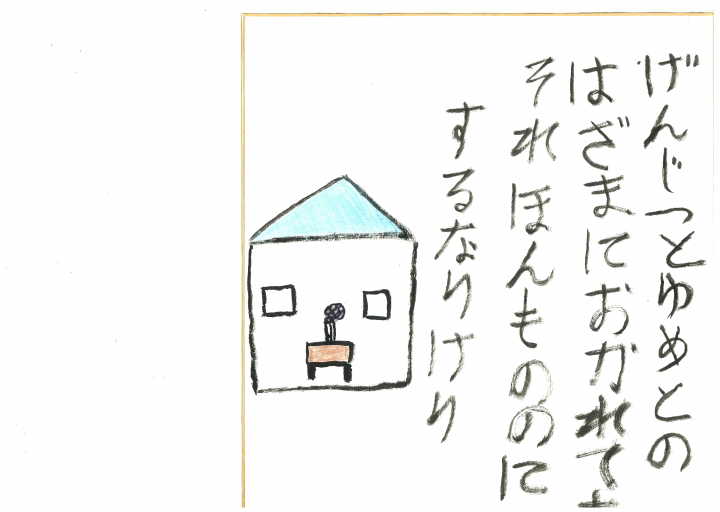 げんじつとゆめとの
はざまにおかれて
それほんもののに
するなりけり